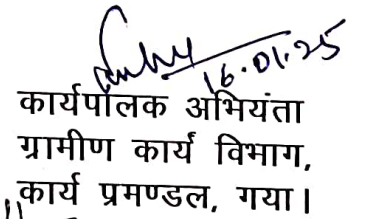 16.01.25
कार्यपालक अभियंता
ग्रामीण कार्य विभाग,
कार्य प्रमण्डल, गया।